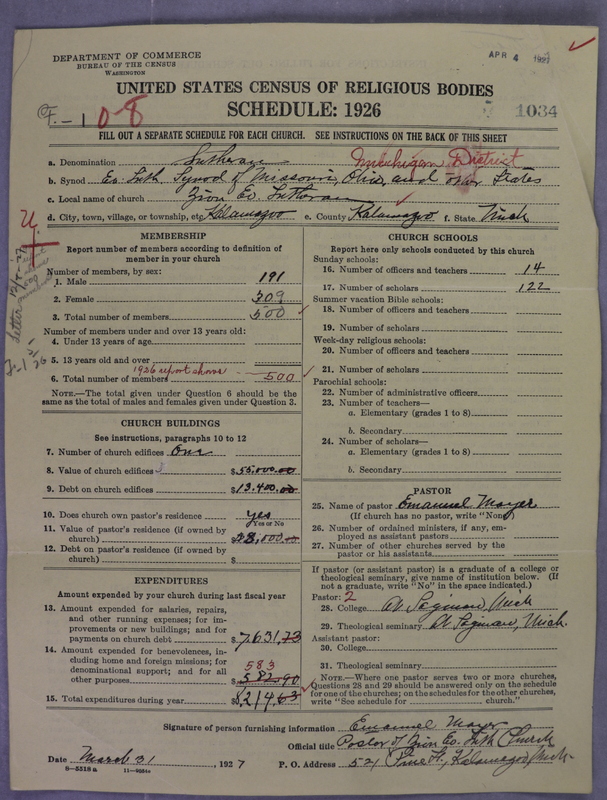 DEPARTMENT OF COMMERCE
BUREAU OF THE CENSUS
WASHINGTON
APR 4 1927
UNITED STATES CENSUS OF RELIGIOUS BODIES
SCHEDULE: 1926
1034
FILL OUT A SEPARATE SCHEDULE FOR EACH CHURCH. SEE INSTRUCTIONS ON THE BACK OF THIS SHEET
a. Denomination Lutheran Michigan District
b. Synod Ev. Luth. Synod of Missouri, Ohio, and other States
c. Local name of church Zion Ev. Lutheran
d. City, town, village, or township, etc Kalamazoo e. County Kalamazoo f. State Mich
MEMBERSHIP
Report number of members according to definition of
member in your church
Number of members, by sex:
1. Male 191
2. Female 309
3. Total number of members 500
Number of members under and over 13 years old:
4. Under 13 years of age
5. 13 years old and over
1926 report shows
6. Total number of members 500
NOTE.—The total given under Question 6 should be the
same as the total of males and females given under Question 3.
CHURCH BUILDINGS
See instructions, paragraphs 10 to 12
7. Number of church edifices One
8. Value of church edifices $55,000.00
9. Debt on church edifices $13,400.00
10. Does church own pastor's residence Yes
Yes or No
11. Value of pastor's residence (if owned by
church) $28,000
12. Debt on pastor's residence (if owned by
church) $
EXPENDITURES
Amount expended by your church during last fiscal year
13. Amount expended for salaries, repairs,
and other running expenses; for im-
provements or new buildings; and for
payments on church debt $7,631.73
14. Amount expended for benevolences, in-
cluding home and foreign missions; for
denominational support; and for all
583
other purposes $582.90
15. Total expenditures during year $8214.63
CHURCH SCHOOLS
Report here only schools conducted by this church
Sunday schools:
16. Number of officers and teachers 14
17. Number of scholars 122
Summer vacation Bible schools:
18. Number of officers and teachers
19. Number of scholars
Week-day religious schools:
20. Number of officers and teachers
21. Number of scholars
Parochial schools:
22. Number of administrative officers
23. Number of teachers—
a. Elementary (grades 1 to 8)
b. Secondary
24. Number of scholars—
a. Elementary (grades 1 to 8)
b. Secondary
PASTOR
25. Name of pastor Emanuel Mayer
(If church has no pastor, write "None")
26. Number of ordained ministers, if any, em-
ployed as assistant pastors
27. Number of other churches served by the
pastor or his assistants
If pastor (or assistant pastor) is a graduate of a college or
theological seminary, give name of institution below. (If
not a graduate, write "No" in the space indicated.)
Pastor: 2
28. College At Saginaw, Mich
29. Theological seminary At Saginaw, Mich.
Assistant pastor:
30. College
31. Theological seminary
NOTE.—Where one pastor serves two or more churches,
Questions 28 and 29 should be answered only on the schedule
for one of the churches; on the schedules for the other churches,
write "See schedule for church."
Signature of person furnishing information Emanuel Mayer
Official title Pastor of Zion Ev. Luth Church
Date March 31, 1927 P. O. Address 521 Pine St., Kalamazoo, Mich
8—5518a 11—9034